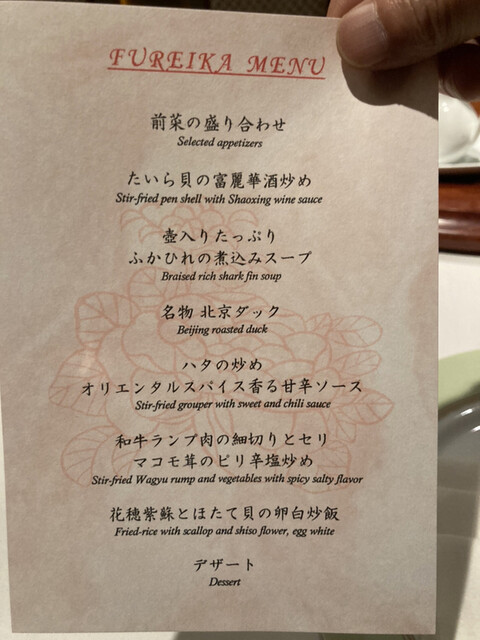 FUREIKA MENU
前菜の盛り合わせ
Selected appetizers
たいら貝の富麗華酒炒め
Stir-fried pen shell with Shaoxing wine sauce
壺入りたっぷり
ふかひれの煮込みスープ
Braised rich shark fin soup
名物 北京ダック
Beijing roasted duck
ハタの炒め
オリエンタルスパイス香る甘辛ソース
Stir-fried grouper with sweet and chili sauce
和牛ランプ肉の細切りとセリ
マコモ茸のピリ辛塩炒め
Stir-fried Wagyu rump and vegetables with spicy salty flavor
花穂紫蘇とほたて貝の卵白炒飯
Fried-rice with scallop and shiso flower, egg white
デザート
Dessert